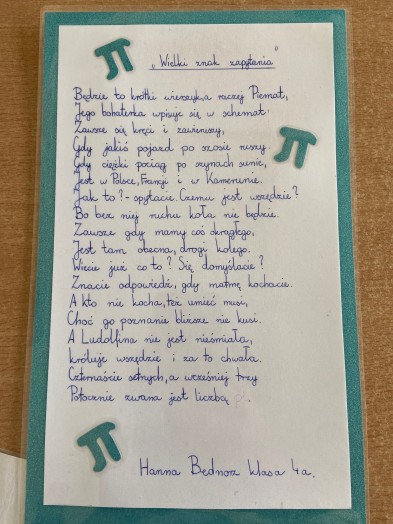 π
„Wielki znak zapytania”
Będzie to krótki wierszyk, a raczej Piemat,
Jego bohaterka wpisuje się w schemat.
Zawsze się kręci i zawieruszy,
Gdy jakiś pojazd po szosie ruszy.
π
Gdy ciężki pociąg po szynach sunie,
Jest w Polsce, Francji i w Kamerunie.
Jak to? - spytacie. Czemu jest wszędzie?
Bo bez niej ruchu koła nie będzie.
Zawsze gdy mamy coś okrągłego,
Jest tam obecna, drogi kolego.
Wiecie już co to? Się domyślacie?
Znacie odpowiedź, gdy matmę kochacie.
A kto nie kocha, też umieć musi,
Choć go poznanie bliższe nie kusi.
A Ludolfina nie jest nieśmiała,
króluje wszędzie i za to chwała.
Czternaście setnych, a wcześniej trzy
Potocznie zwana jest liczbą
π
Hanna Bednorz klasa 4a.